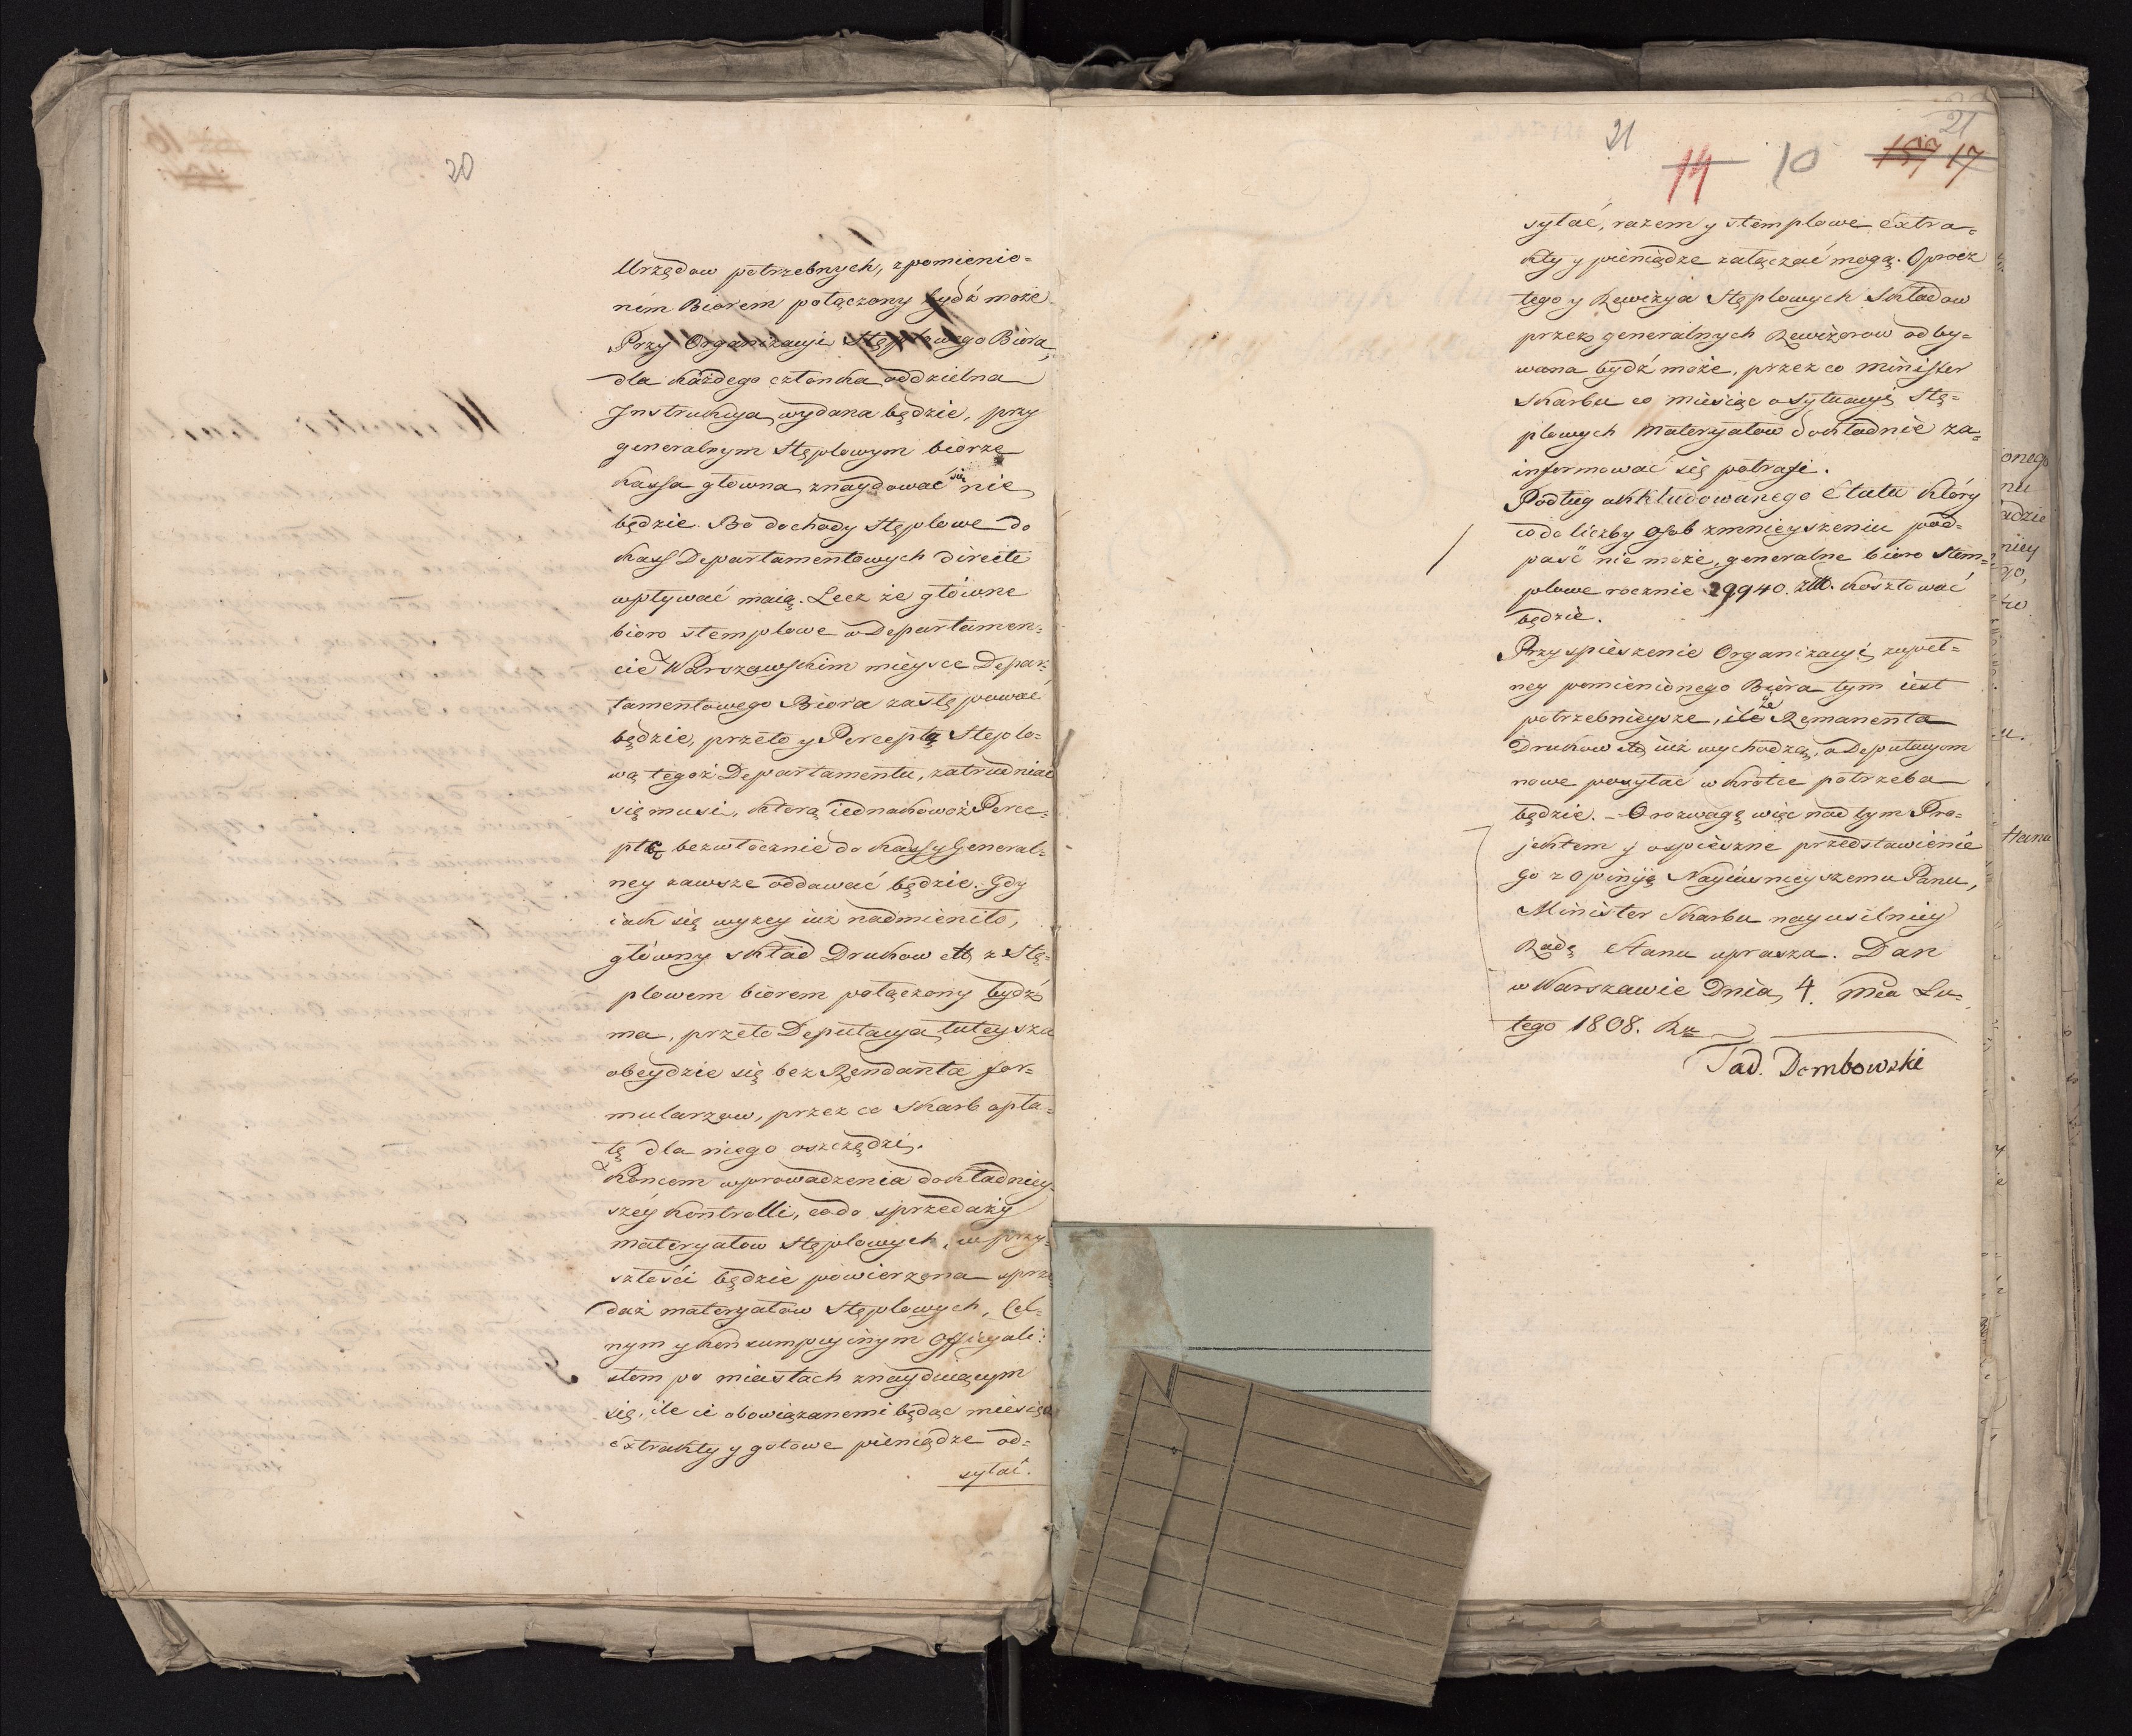 20
Urzędow potrzebnych, z pomienio=
nim Biorem połączony bydź może
Przy Organizacyi Stęplowego Biora,
dla każdego członka oddzielna
Instrukcya wydana będzie, przy
generalnym Stęplowym biorze
Kassa głowna znaydować się nie
będzie. Bo dochody Stęplowe do
Kass Departamentowych directe
wpływać maią. Lecz że główne
bioro stemplowe w Departamen=
cie Warszawskim mieysce Depar=
tamentowego Biora zastępować
będzie, przeto y Perceptą Stęplo=
wą tegoż Departamentu, zatrudniać
się musi, którą iednakowoż Perce=
ptę bezwłocznie do Kassy General=
ney zawsze oddawać będzie. Gdy
iak się wyzey iuż nadmieniło,
główny skład Drukow etc z Stę=
plowem biorem połączony bydź
ma, przeto Deputacya tuteysza
obeydzie się bez Rendanta for=
mularzow, przez co Skarb opła=
tę dla niego oszczędzi.
Końcem wprowadzenia dokładniey=
szey Kontrolli, co do sprzedaży
materyałow Stęplowych, w przy=
szłości będzie powierzona sprze
daż materyałow Stęplowych, Cel=
nym y Konsumpcyinym Officyali=
stom po miastach znayduiącym
się, ile ci obowiązanemi będąc miesię
extrakty y gotowe pieniądze od=
syłać.
21
21
14 10 157 17
syłać, razem y stemplowe extra=
kty y pieniądze załączać mogą. Oprócz
tego y Rewizya Stęplowych Składow
przez generalnych Rewizorow odby=
wana bydź może, przez co Minister
Skarbu co miesiąc o sytuacyi Stę=
plowych Materyałow dokładnie za=
informować się potrafi.
Podług akkludowanego Etatu który
co do liczby osob zmnieyszeniu pod=
paść nie może, generalne bioro stem=
plowe rocznie 29940. złł. kosztować
będzie.
Przyspieszenie Organizacyi zupeł=
ney pomienionego Biora tym iest
potrzebnieysze, ile że Remanenta
Drukow etc iuż wychodzą, a Deputacyom
nowe posyłać w krótce potrzeba
będzie. – O rozwagę więc nad tym Pro=
jektem y ospieszne przedstawienie
go z opiniją Nayiaśnieyszemu Panu,
Minister Skarbu nayusilniey
Radę Stanu uprasza. Dan
w Warszawie Dnia 4. Mca Lu=
tego 1808. Ru
Tad. Dembowski